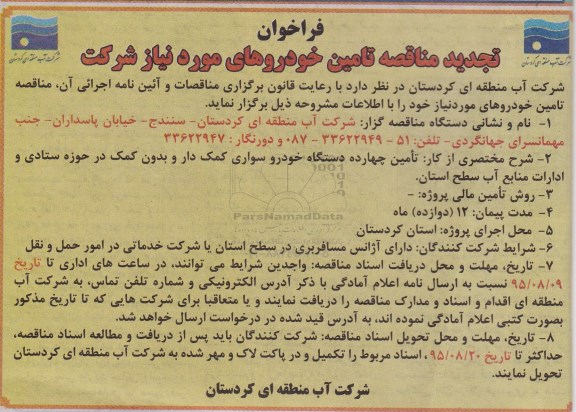 فراخوان
تجدید مناقصه تامین خودروهای مورد نیاز شرکت
شرکت آب منطقه ای کردستان در نظر دارد با رعایت قانون برگزاری مناقصات و آئین نامه اجرائی آن، مناقصه
تامین خودروهای موردنیاز خود را با اطلاعات مشروحه ذیل برگزار نماید.
۱- نام و نشانی دستگاه مناقصه گزار: شرکت آب منطقه ای کردستان- سنندج- خیابان پاسداران- جنب
مهمانسرای جهانگردی- تلفن: ۵۱ - ۳۳۶۲۲۹۴۹ - ۰۸۷ و دورنگار : ۳۳۶۲۲۹۴۷
۲- شرح مختصری از کار: تأمین چهارده دستگاه خودرو سواری کمک دار و بدون کمک در حوزه ستادی و
ادارات منابع آب سطح استان.
۳- روش تأمین مالی پروژه: -
۴- مدت پیمان: ۱۲ (دوازده) ماه
۵- محل اجرای پروژه: استان کردستان
۶- شرایط شرکت کنندگان: دارای آژانس مسافربری در سطح استان یا شرکت خدماتی در امور حمل و نقل
۷- تاریخ، مهلت و محل دریافت اسناد مناقصه: واجدین شرایط می توانند، در ساعت های اداری تا تاریخ
۹۵/۰۸/۰۹ نسبت به ارسال نامه اعلام آمادگی با ذکر آدرس الکترونیکی و شماره تلفن تماس، به شرکت آب
منطقه ای اقدام و اسناد و مدارک مناقصه را دریافت نمایند و یا متعاقبا برای شرکت هایی که تا تاریخ مذکور
بصورت کتبی اعلام آمادگی نموده اند، به آدرس قید شده در درخواست ارسال خواهد شد.
۸- تاریخ، مهلت و محل تحویل اسناد مناقصه: شرکت کنندگان باید پس از دریافت و مطالعه اسناد مناقصه،
حداکثر تا تاریخ ۹۵/۰۸/۲۰ ، اسناد مربوط را تکمیل و در پاکت لاک و مهر شده به شرکت آب منطقه ای کردستان
تحویل نمایند.
شرکت آب منطقه ای کردستان
شرکت آب منطقه ای کردستان
شرکت آب منطقه ای کردستان
ParsNamadData